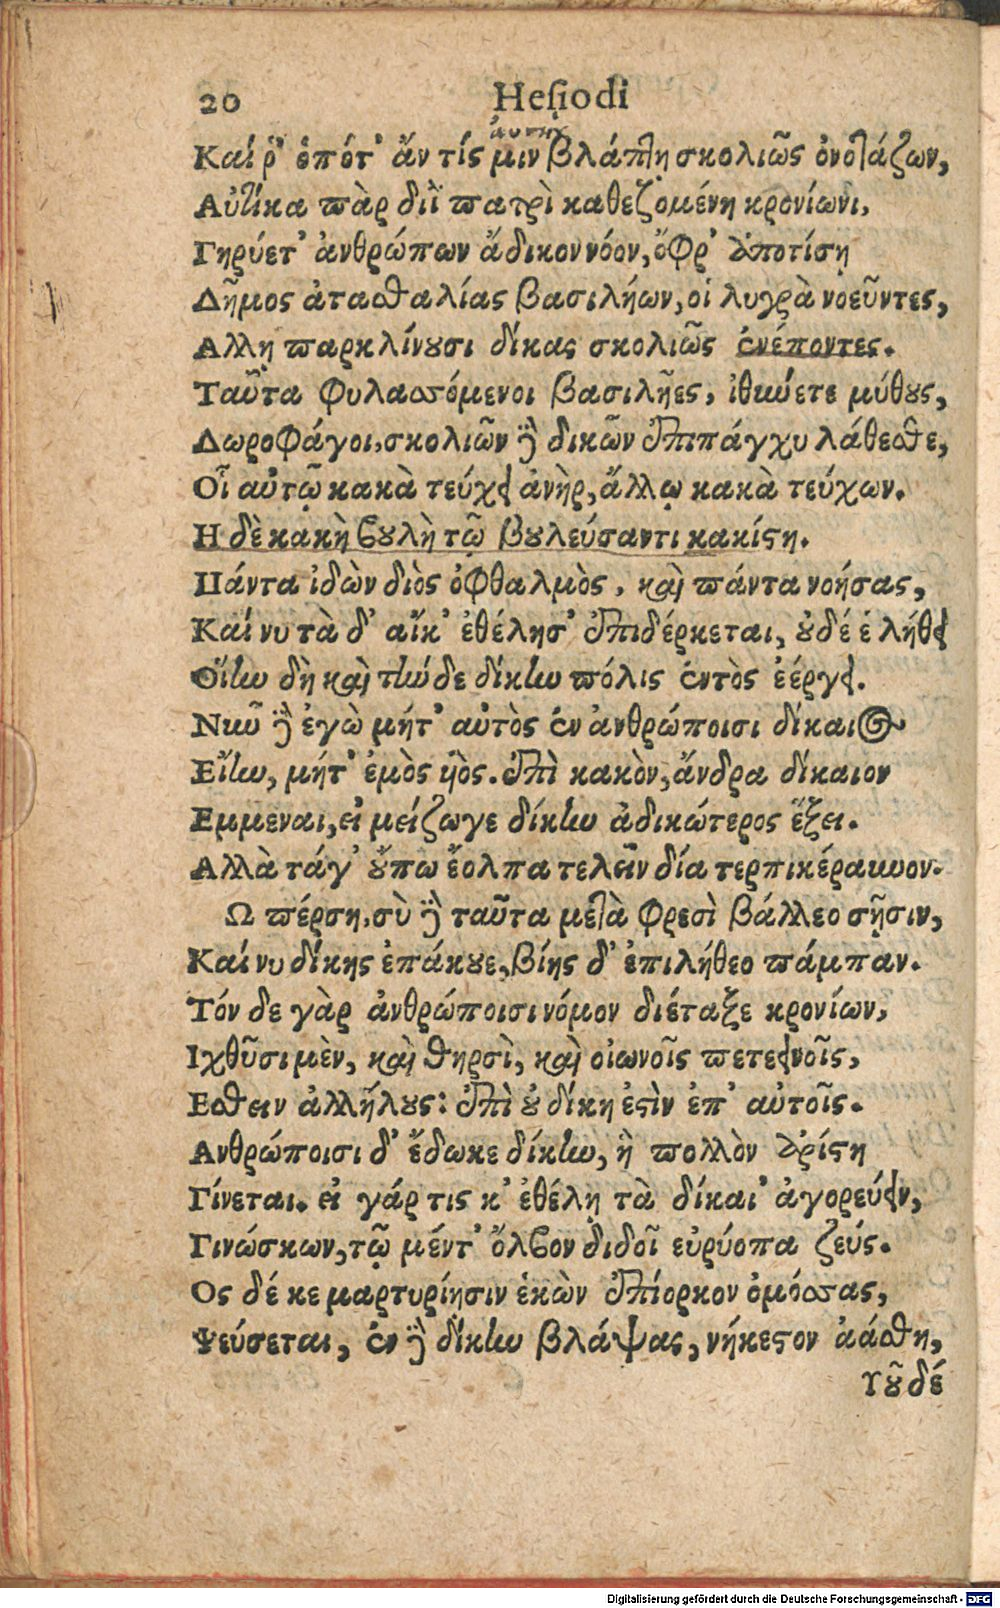 20 Hesiodi
αυτην
Καί ῥ' ὁπότ' ἄν τίς μιν βλάπτῃ σκολιῶς ὀνοτάζων,
Αὐτίκα πὰρ διῒ πατρὶ καθεζομένη κρονίωνι,
Γηρύετ' ἀνθρώπων ἄδικον νόον, ὄφρ' ἀποτίσῃ
Δῆμος ἀτασθαλίας βασιλήων, οἱ λυγρὰ νοεῦντες,
Αλλῃ παρκλίνουσι δίκας σκολιῶς ἐνέποντες.
Ταῦτα φυλασσόμενοι βασιλῆες, ἰθύνετε μύθους,
Δωροφάγοι, σκολιῶν δὲ δικῶν ἐπιπάγχυ λάθεσθε,
Οἷ αὐτῷ κακὰ τεύχει ἀνὴρ, ἄλλῳ κακὰ τεύχων.
Η δὲ κακὴ βουλὴ τῷ βουλεύσαντι κακίστη.
Πάντα ἰδὼν διὸς ὀφθαλμὸς, καὶ πάντα νοήσας,
Καί νυ τὰ δ' αἴκ' ἐθέλησ' ἐπιδέρκεται, οὐδέ ἑ λήθει
Οἵην δὴ καὶ τήνδε δίκην πόλις ἐντὸς ἐέργει.
Νῦν δὲ ἐγὼ μήτ' αὐτὸς ἐν ἀνθρώποισι δίκαιος
Εἴην, μήτ' ἐμὸς υἱός. ἐπὶ κακὸν, ἄνδρα δίκαιον
Εμμεναι, εἰ μείζωγε δίκην ἀδικώτερος ἕξει.
Αλλὰ τάγ' οὔπω ἔολπα τελεῖν δία τερπικέραυνον.
Ω πέρση, σὺ δὲ ταῦτα μετὰ φρεσὶ βάλλεο σῇσιν,
Καί νυ δίκης ἐπάκουε, βίης δ' ἐπιλήθεο πάμπαν.
Τόν δε γὰρ ἀνθρώποισι νόμον διέταξε κρονίων,
Ιχθῦσι μὲν, καὶ θηρσὶ, καὶ οἰωνοῖς πετεεινοῖς,
Εσθειν ἀλλήλους: ἐπὶ οὐ δίκη ἐστὶν ἐπ' αὐτοῖς.
Ανθρώποισι δ' ἔδωκε δίκην, ἣ πολλὸν ἀρίστη
Γίνεται. εἰ γάρ τις κ' ἐθέλῃ τὰ δίκαι' ἀγορεύειν,
Γινώσκων, τῷ μέντ' ὄλβον διδοῖ εὐρύοπα ζεύς.
Ος δέ κε μαρτυρίῃσιν ἑκὼν ἐπίορκον ὀμόσσας,
Ψεύσεται, ἐν δὲ δίκην βλάψας, νήκεστον ἀάσθη,
Τοῦ δέ
Digitalisierung gefördert durch die Deutsche Forschungsgemeinschaft - DFG